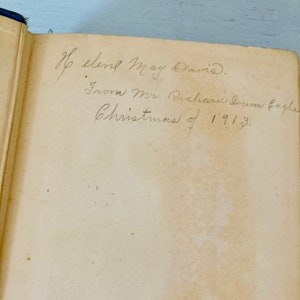 Helene May Davis.
From Mr. Richard Dunn Eagle
Christmas of 1913.